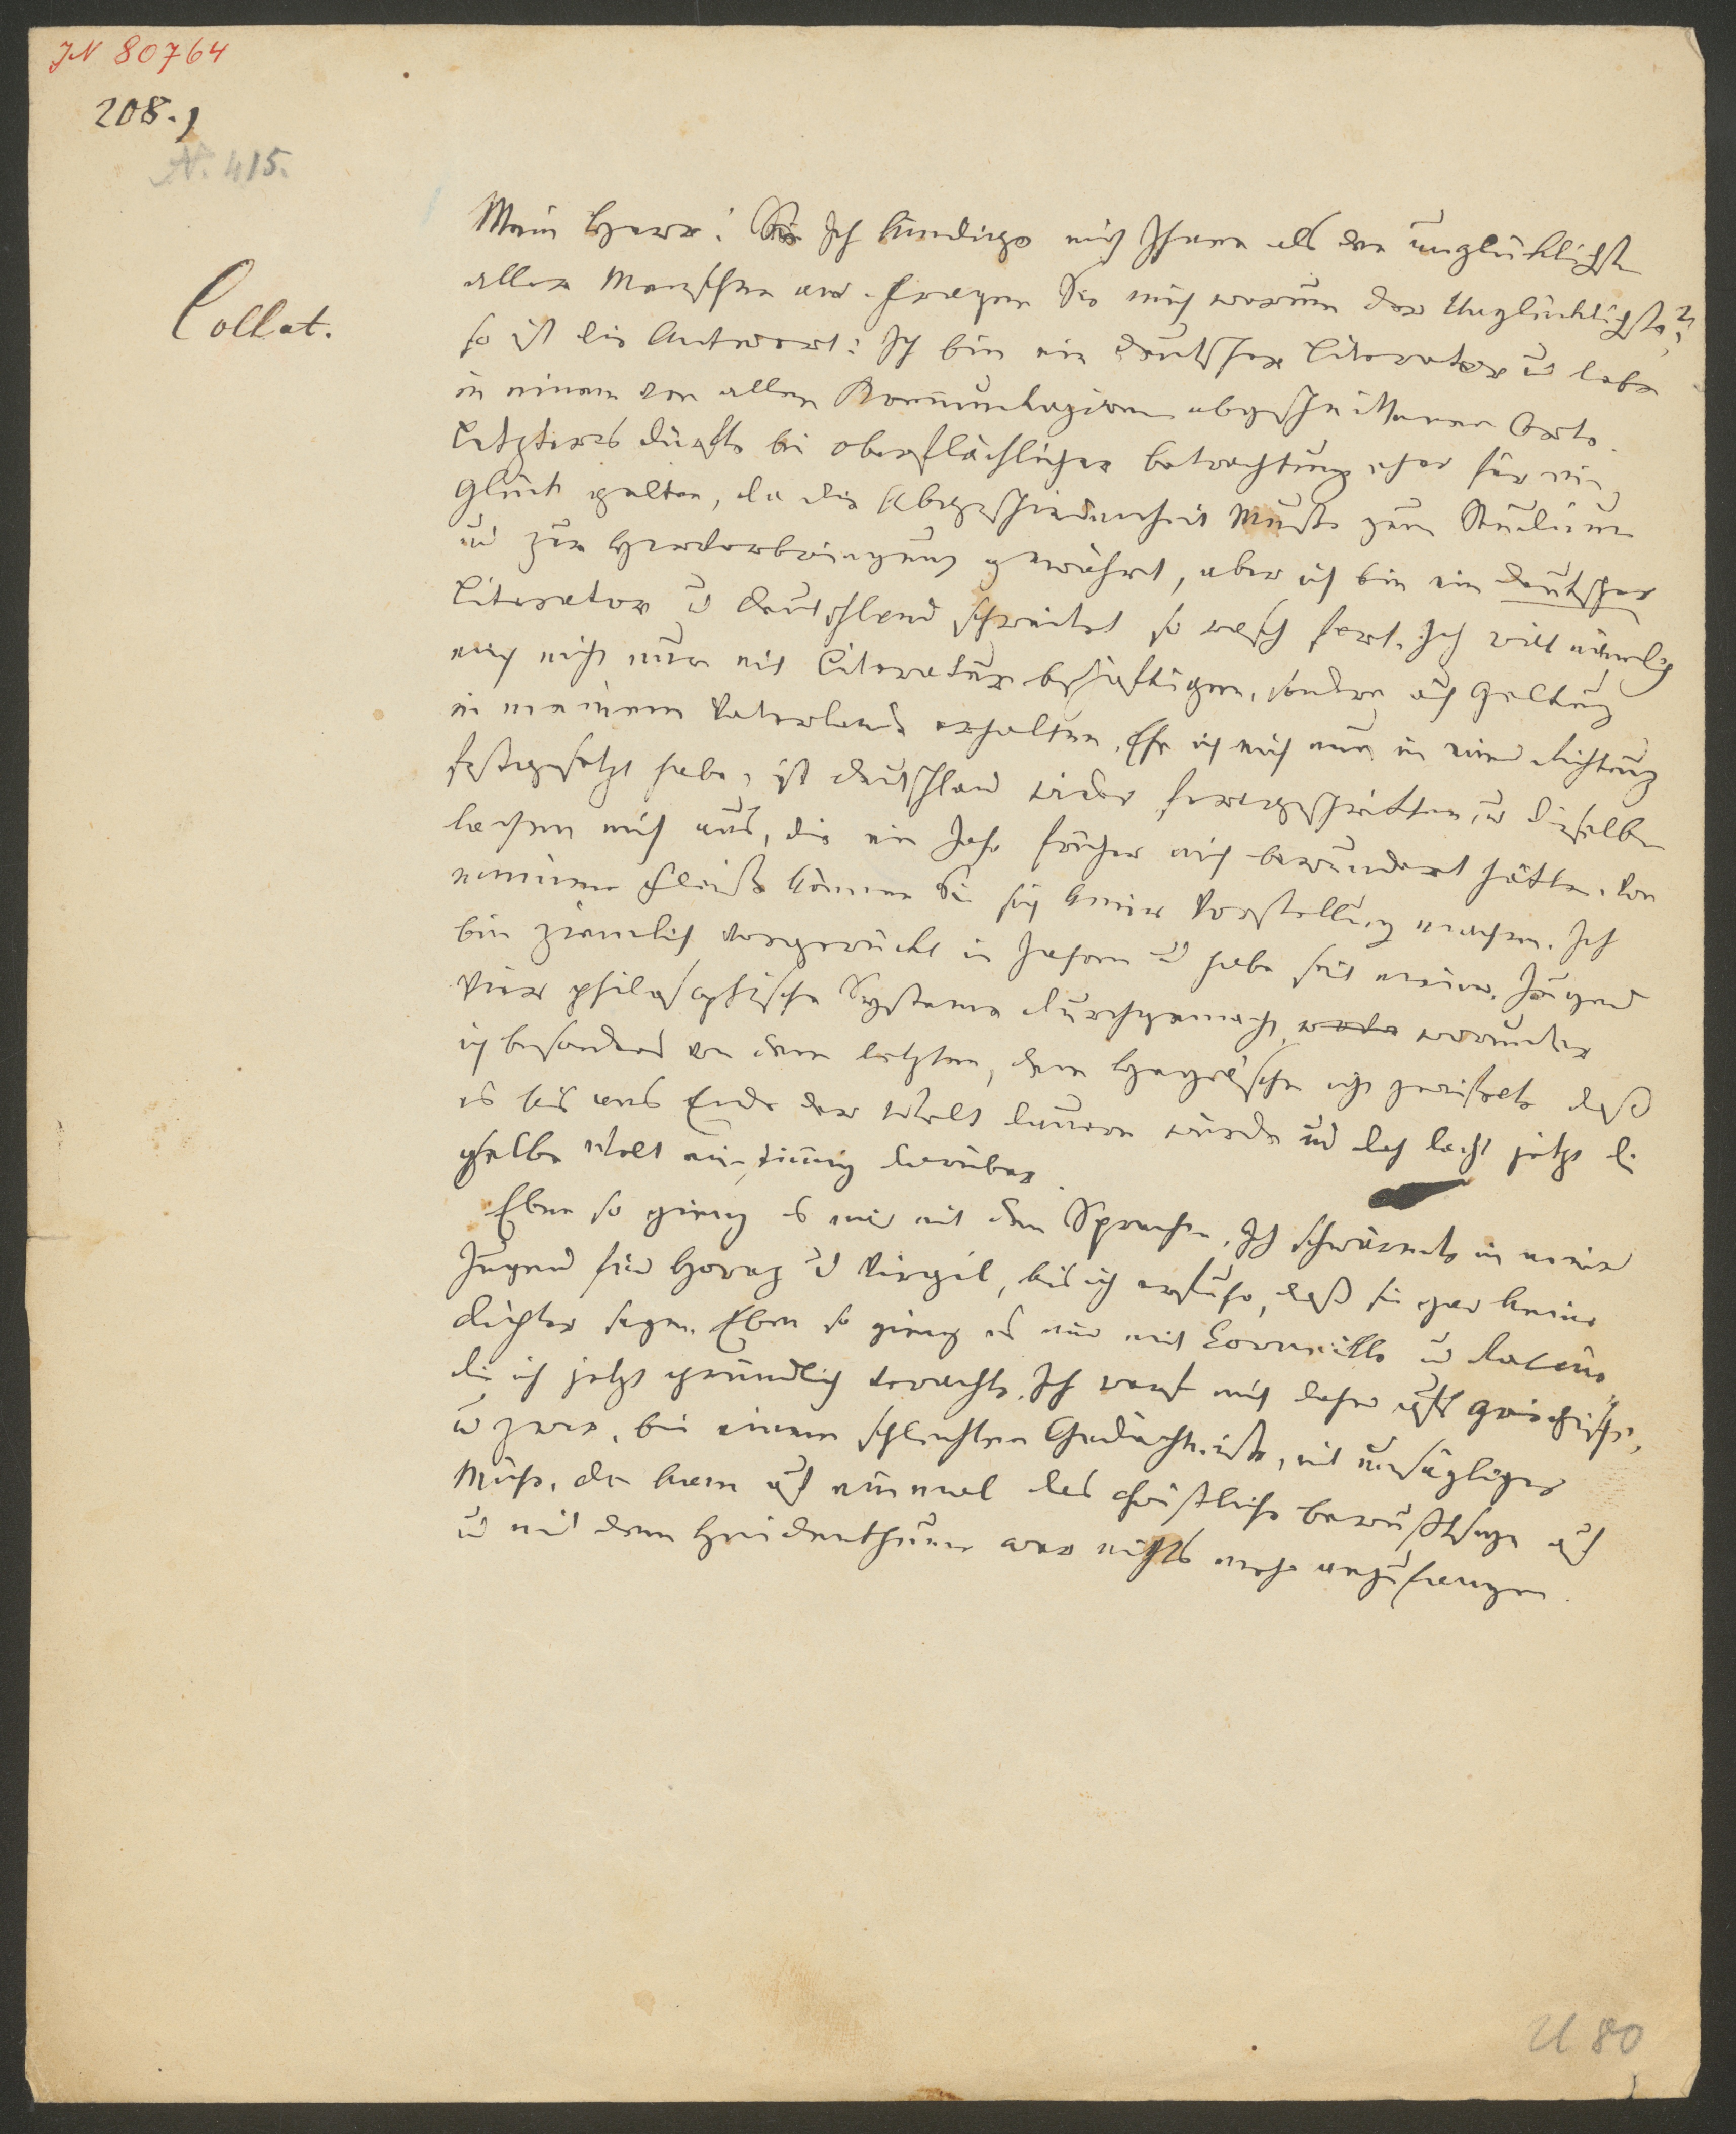 JN 80764
208.1
N. 415.
Collat.
Mein Herr! Sie Ich kündige mich Ihnen als den unglücklichsten
aller Menschen an. Fragen Sie mich warum der Unglücklichste?
so ist die Antwort: Ich bin ein deutscher Literator u lebe
in einem von allen Kommunikazionen abgeschnittenen Orte.
Letzteres dürfte bei oberflächlicher Betrachtung eher für ein
Glück gelten, da die Abgeschiedenheit Muße zum Studium
und zur Hervorbringung gewährt, aber ich bin ein deutscher
Literator u Deutschland schreitet so rasch fort. Ich will nämlich
mich nicht nur mit Literatur beschäftigen, sondern auch Geltung
in meinem Vaterlande erhalten. Ehe ich mich nun in einer Richtung
festgesetzt habe, ist Deutschland wieder fortgeschritten, u dieselben
lachen mich aus, die ein Jahr früher mich bewundert hätten. Von
meinem Fleiße können Sie sich keine Vorstellung machen. Ich
bin ziemlich vorgerückt in Jahren u habe seit meiner Jugend
vier philosophische Systeme durchgemacht, worunter
ich besonders von dem letzten, dem Hegelschen nicht zweifelte daß
es bis ans Ende der Welt dauern würde und doch lacht jetzt die
halbe Welt einstimmig darüber.
Eben so gieng es mir mit den Sprachen. Ich schwärmte in meiner
Jugend für Horaz u Virgil, bis ich erfuhr, daß sie gar keine
Dichter seyen. Eben so gieng es mir mit Corneille u Racine
die ich jetzt gründlich verachte. Ich warf mich daher aufs Griechische,
u zwar, bei einem schlechten Gedächtniße, mit unsäglicher
Mühe. Da kam auf einmal das christliche Bewußtseyn auf
u mit dem Heidenthume war nichts mehr anzufangen.
U 80